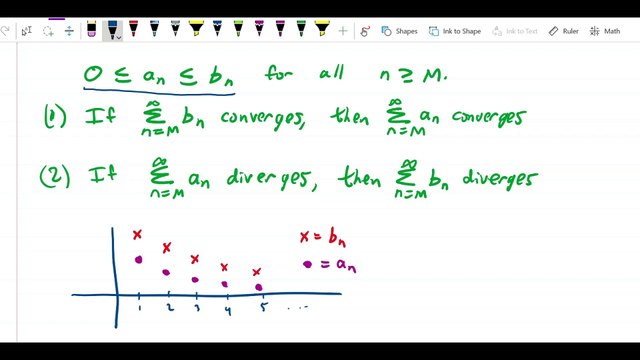 Shapes Ink to Shape Ink to Text Ruler Math
0 ≤ aₙ ≤ bₙ for all n ≥ M.
(1) If ∑_{n=M}^{∞} bₙ converges, then ∑_{n=M}^{∞} aₙ converges
(2) If ∑_{n=M}^{∞} aₙ diverges, then ∑_{n=M}^{∞} bₙ diverges
x = bₙ
• = aₙ
1 2 3 4 5 ...